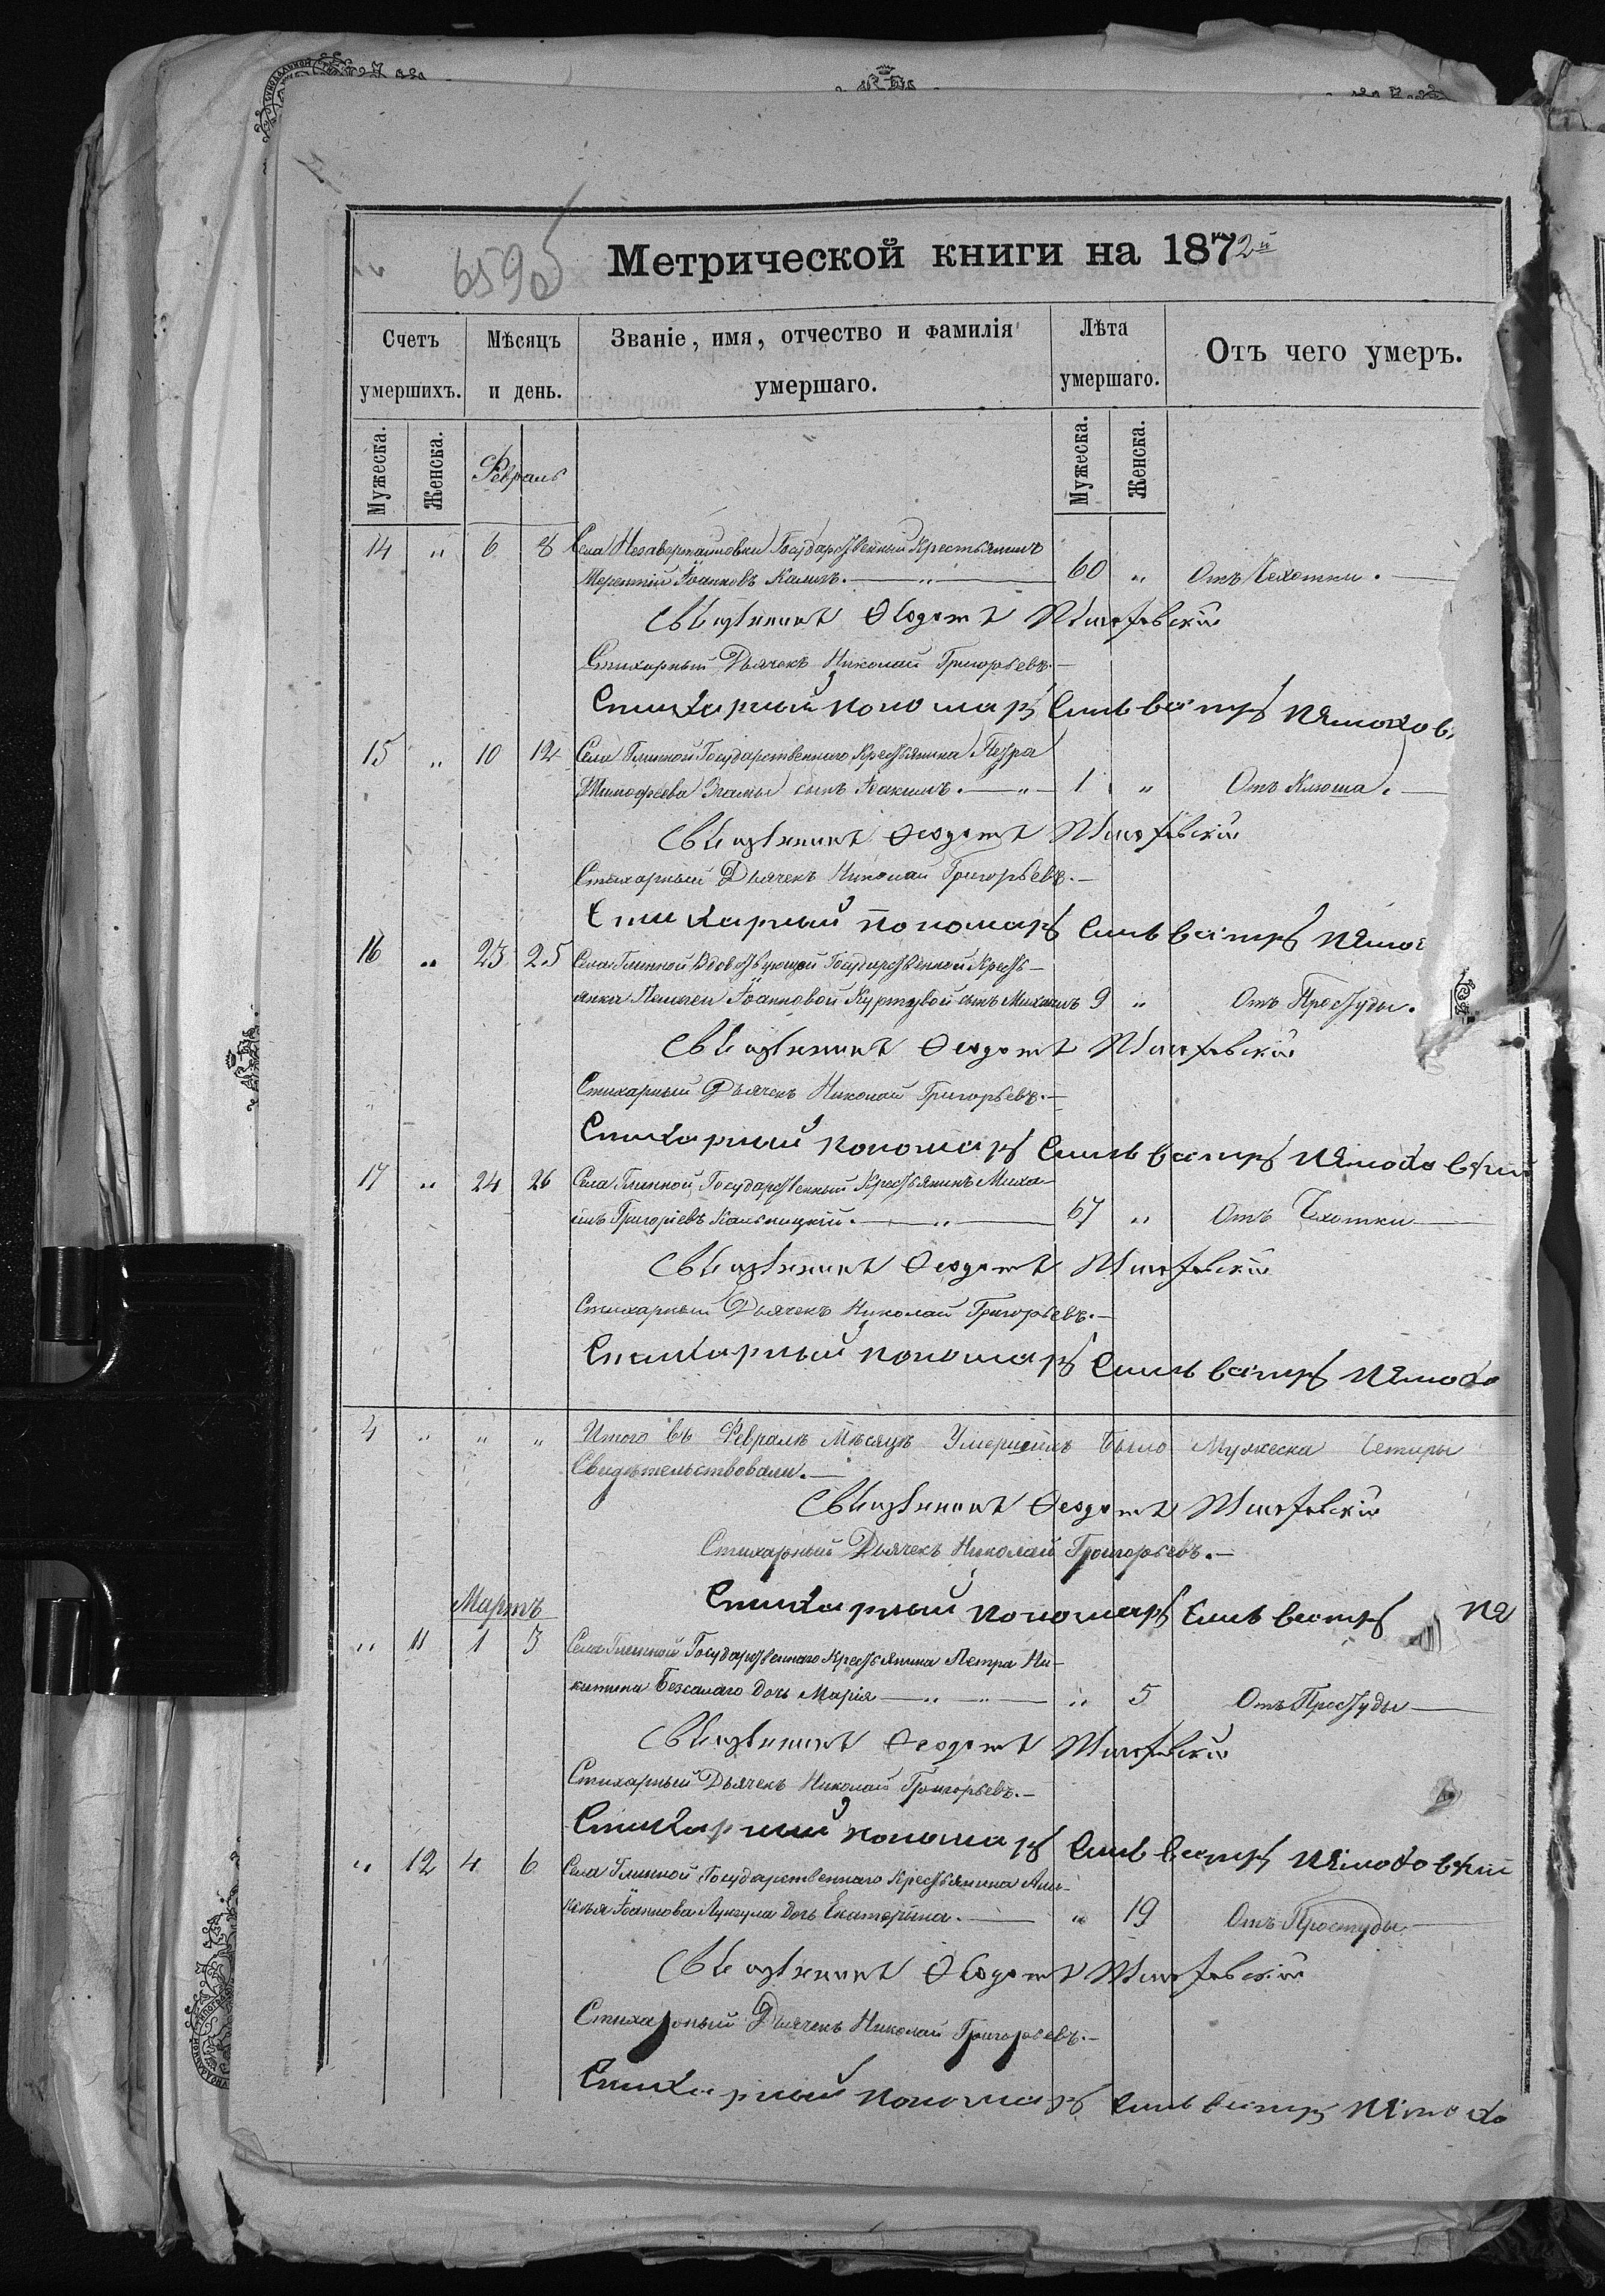 6590
Метрической книги на 1872й
Счетъ умершихъ.
Мѣсяцъ и день.
Званіе, имя, отчество и фамилія умершаго.
Лѣта умершаго.
Отъ чего умеръ.
Мужеска.
Женска.
Мужеска.
Женска.
Февраль
14 " 6 8 Села Незавертайловки Государственный Крестьянинъ
Терентій Іоанновъ 60 " Отъ Чахотки.
Священникъ Ѳеодотъ
Стихарный Дьячекъ Николай Григорьевъ.
Стихарный пономарь Сильвестръ
15 " 10 12 Села Глинной Государственнаго Крестьянина Петра
Тимофеева сынъ Іоакимъ. " 1 " Отъ Клюша.
Священникъ Ѳеодотъ
Стихарный Дьячекъ Николай Григорьевъ.
Стихарный пономарь Сильвестръ
16 " 23 25 Села Глинной Вдовствующей Государственной Кресть-
янки Пелагеи Іоанновой сынъ Михаилъ 9 " Отъ Простуды.
Священникъ Ѳеодотъ
Стихарный Дьячекъ Николай Григорьевъ.
Стихарный пономарь Сильвестръ
17 " 24 26 Села Глинной Государственный Крестьянинъ Миха-
илъ Григоріевъ Кальницкій. " 67 " Отъ Чахотки
Священникъ Ѳеодотъ
Стихарный Дьячекъ Николай Григорьевъ.
Стихарный пономарь Сильвестръ
4 " " " Итого въ Февралѣ Мѣсяцѣ Умершихъ Было Мужеска Четыры
Свидѣтельствовали.
Священникъ Ѳеодотъ
Стихарный Дьячекъ Николай Григорьевъ.
Стихарный пономарь Сильвестръ
Мартъ
" 11 1 3 Села Глинной Государственнаго Крестьянина Петра Ни-
китина Безсалаго дочь Марія " " " 5 Отъ Простуды
Священникъ Ѳеодотъ
Стихарный Дьячекъ Николай Григорьевъ.
Стихарный пономарь Сильвестръ
" 12 4 6 Села Глинной Государственнаго Крестьянина
Іоаннова Лунгула дочь Екатерина. " 19 Отъ Простуды
Священникъ Ѳеодотъ
Стихарный Дьячекъ Николай Григорьевъ.
Стихарный пономарь Сильвестръ